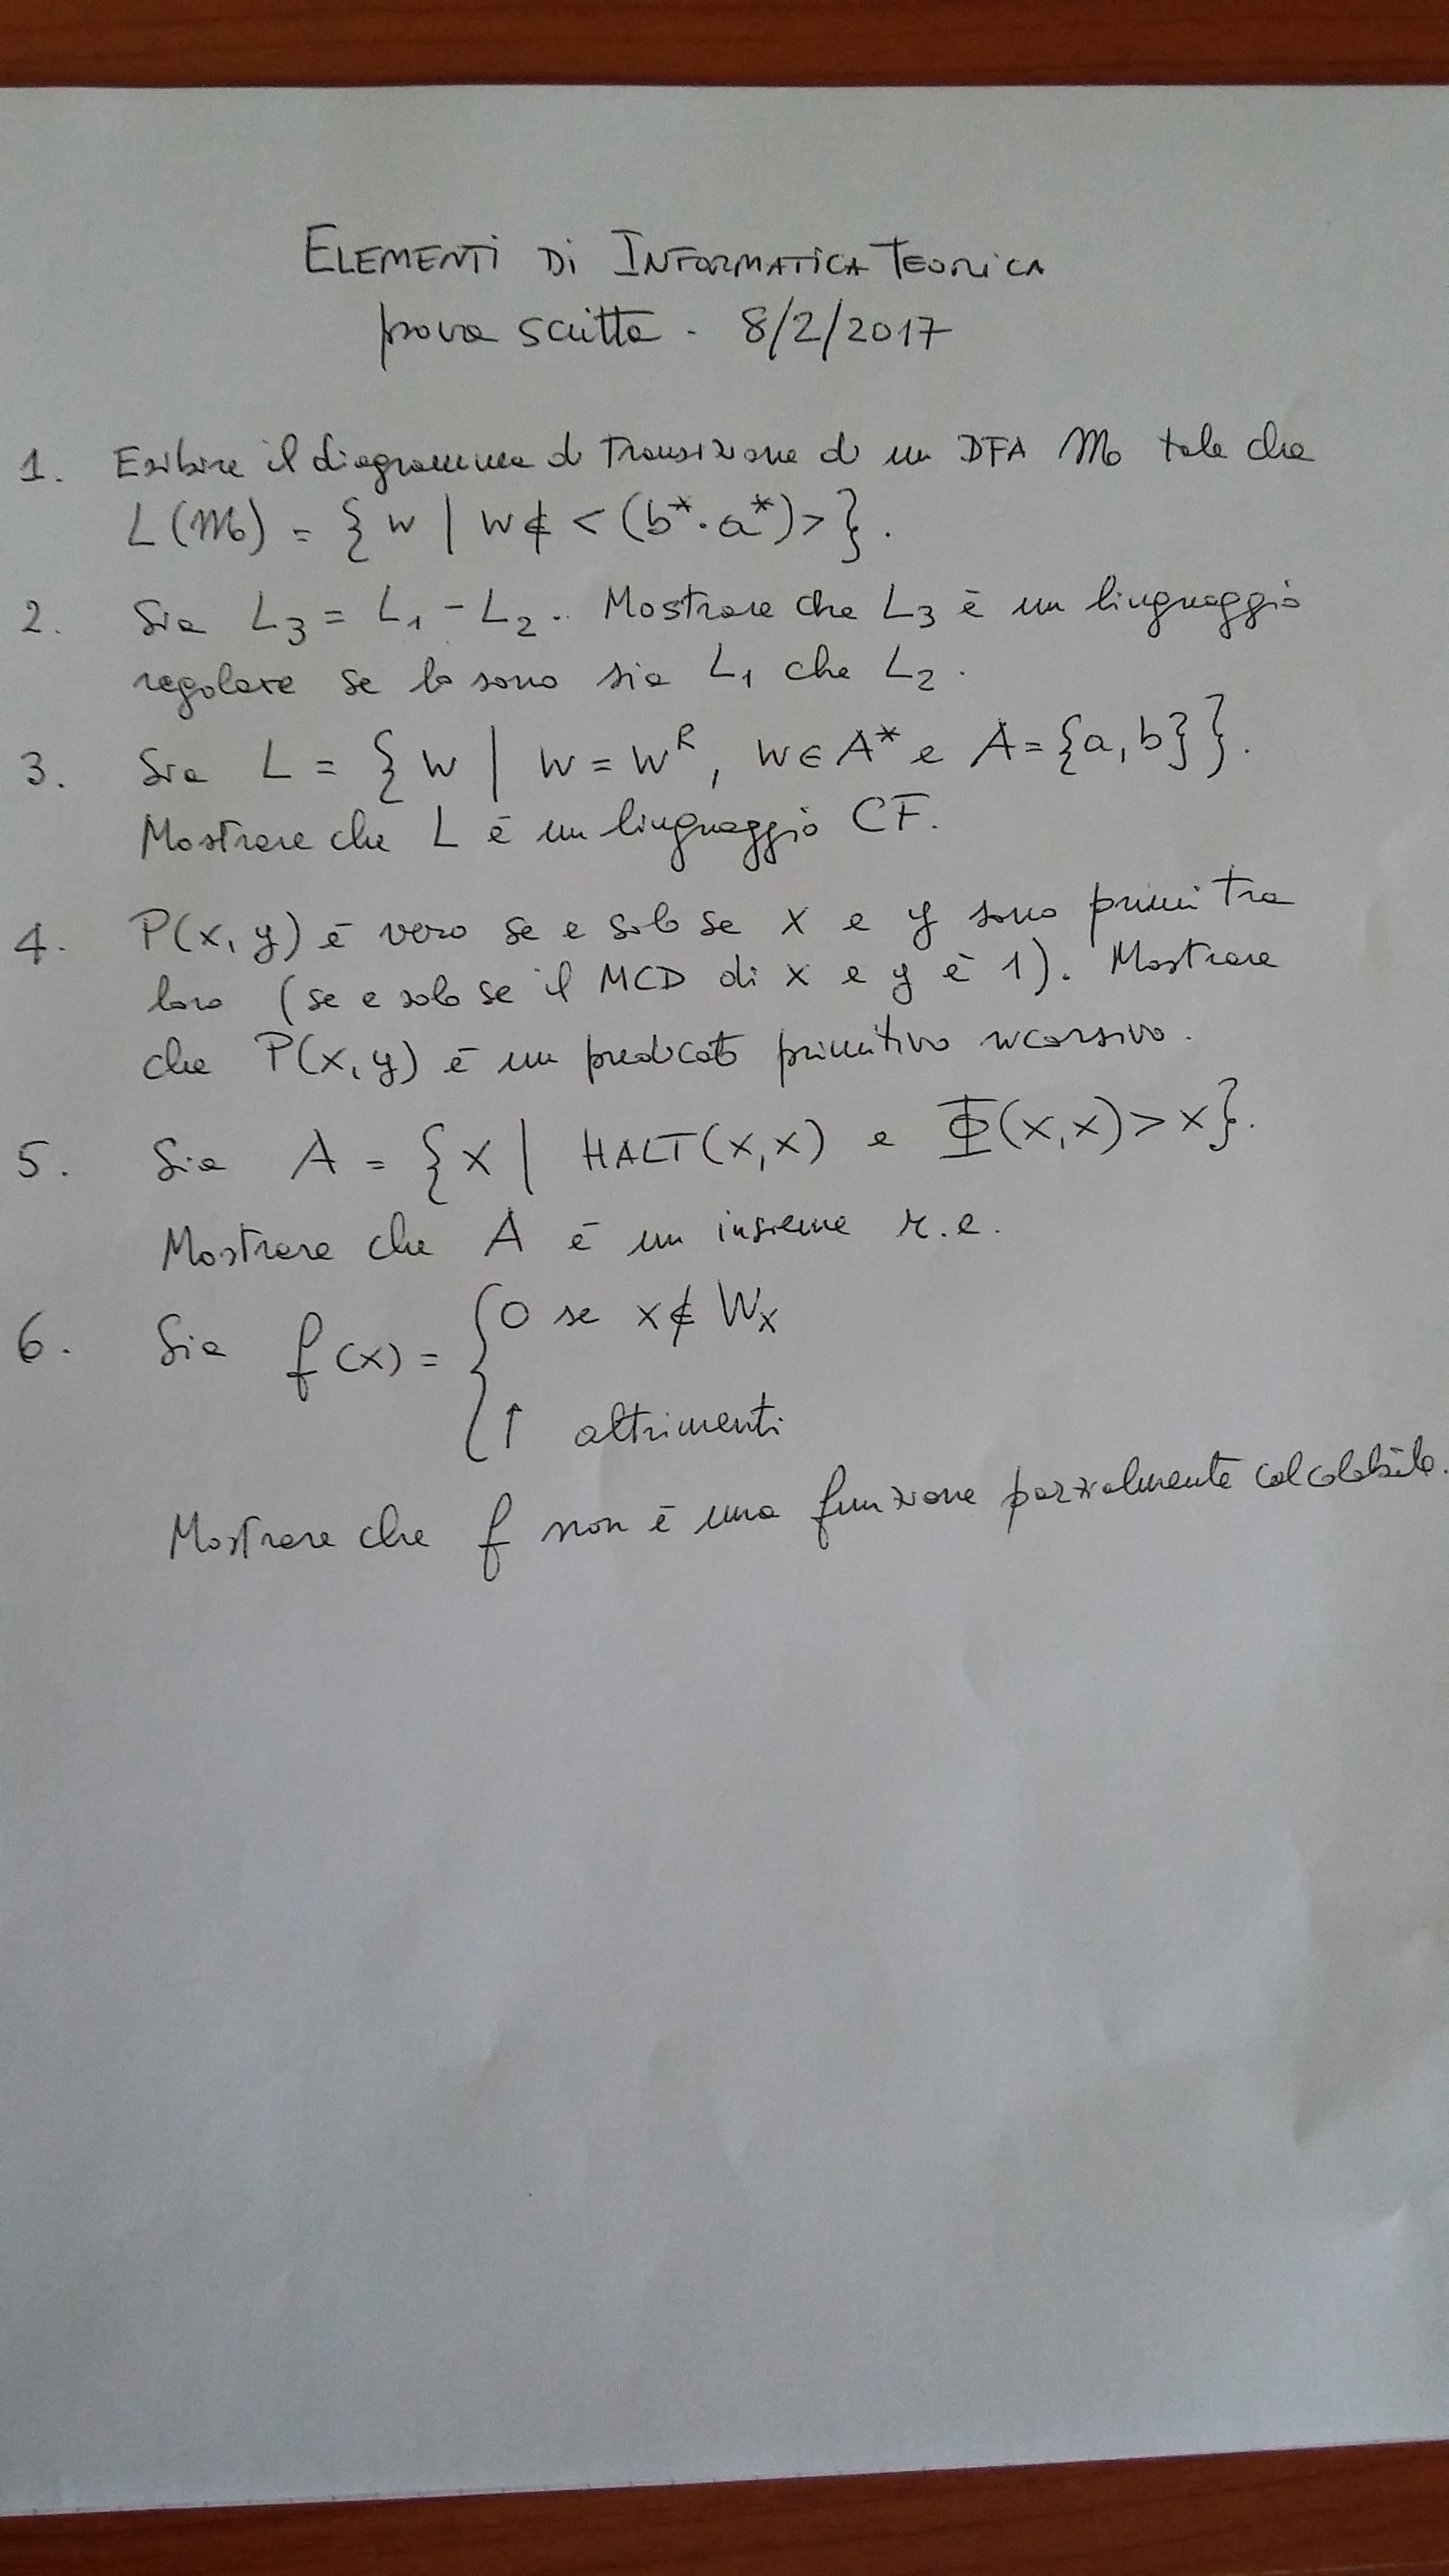 ELEMENTI DI INFORMATICA TEORICA
prova scritta - 8/2/2017
1. Esibire il diagramma di transizione di un DFA M tale che
L(M) = { w | w ∉ <(b*·a*)> }.
2. Sia L₃ = L₁ - L₂. Mostrare che L₃ è un linguaggio
regolare se lo sono sia L₁ che L₂.
3. Sia L = { w | w = wᴿ, w ∈ A* e A = {a, b} }.
Mostrare che L è un linguaggio CF.
4. P(x, y) è vero se e solo se x e y sono primi tra
loro (se e solo se il MCD di x e y è 1). Mostrare
che P(x, y) è un predicato primitivo ricorsivo.
5. Sia A = { x | HALT(x,x) e Φ(x,x) > x }.
Mostrare che A è un insieme r.e.
6. Sia f(x) = { 0 se x ∉ Wₓ
↑ altrimenti
Mostrare che f non è una funzione parzialmente calcolabile.